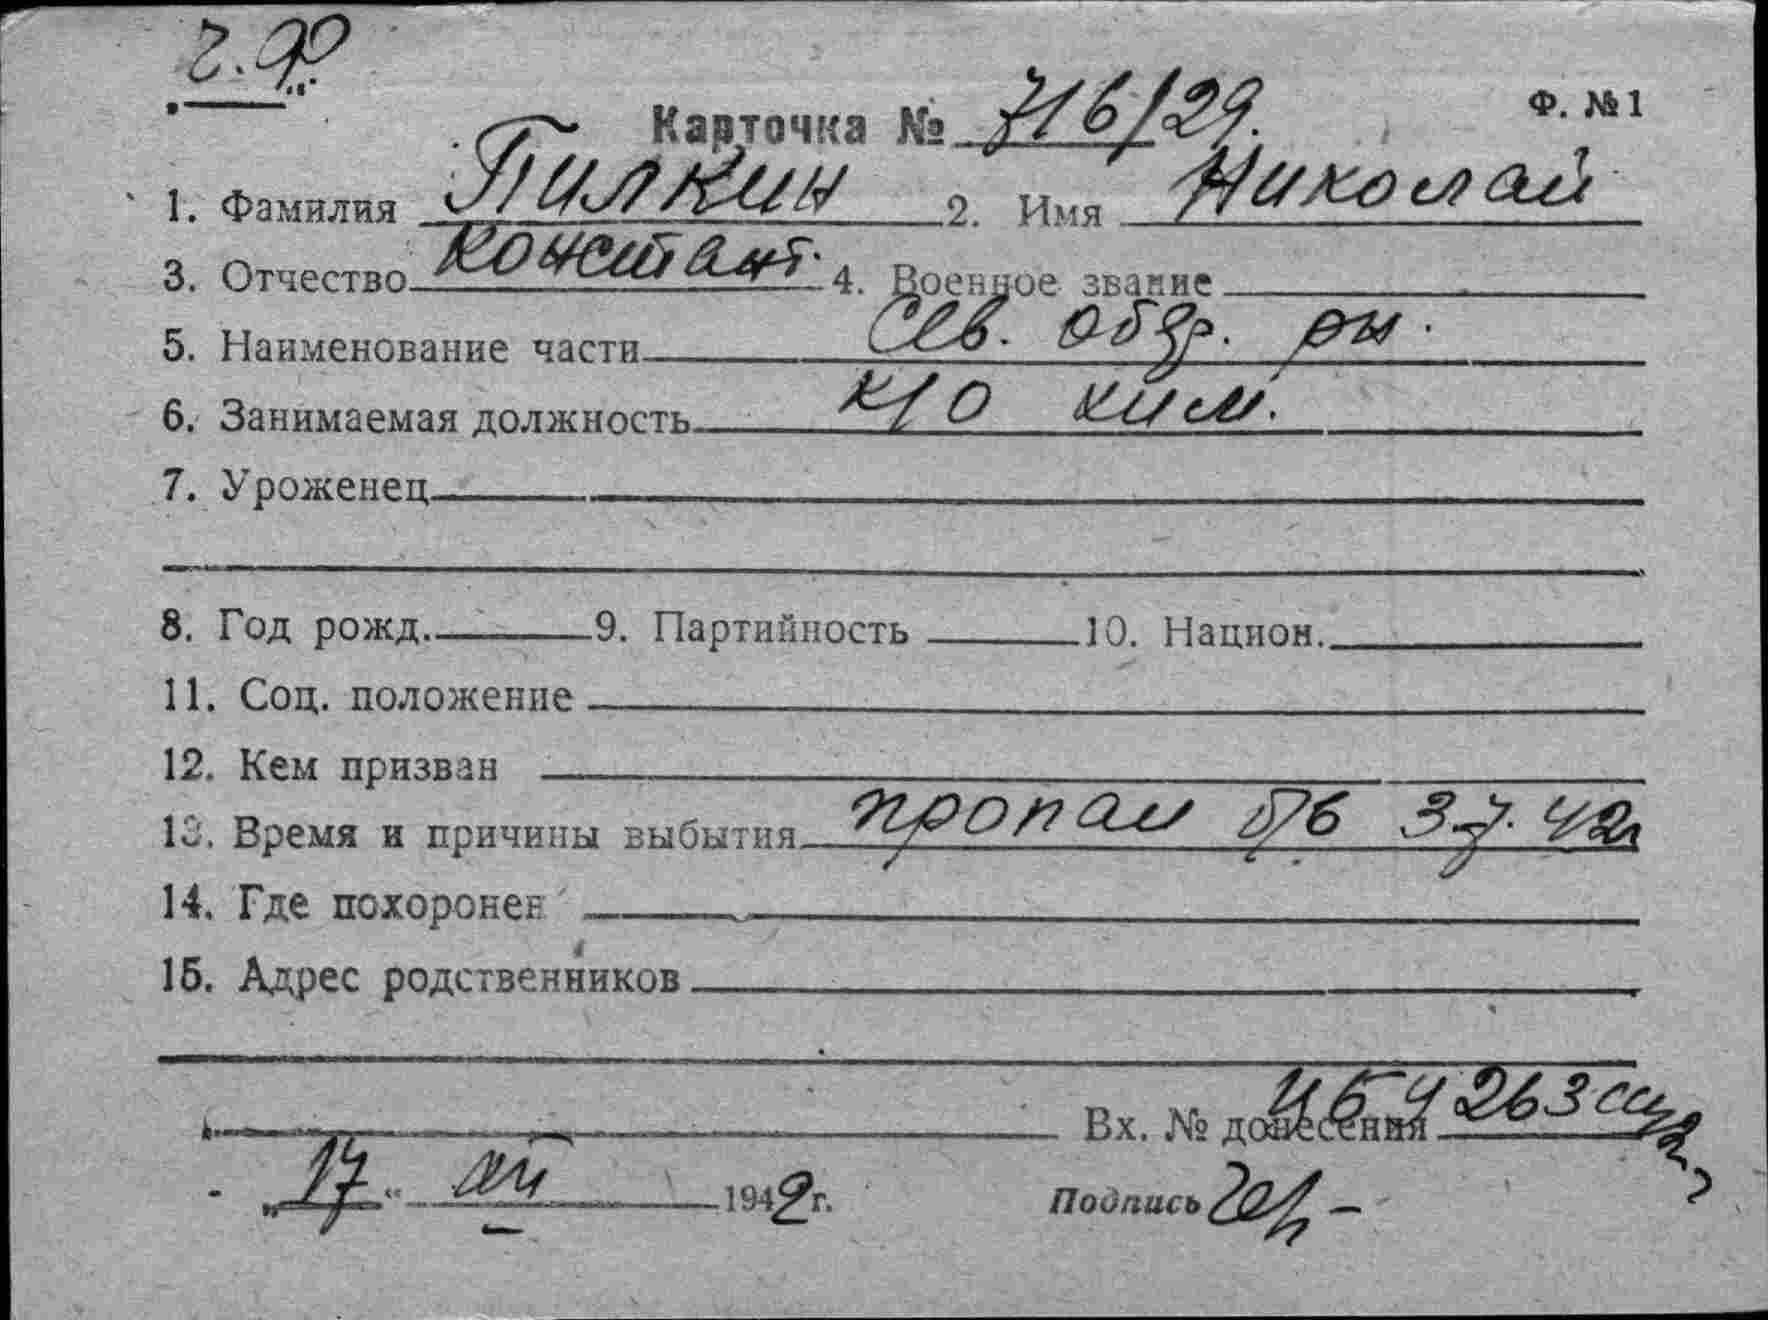 Ф. №1
Карточка № 716/29.
1. Фамилия Пилкин 2. Имя Николай
3. Отчество Констант. 4. Военное звание
5. Наименование части Сев. обзр. рн.
6. Занимаемая должность к/о хим.
7. Уроженец
8. Год рожд. 9. Партийность 10. Национ.
11. Соц. положение
12. Кем призван
13. Время и причины выбытия пропал б/в 3.7.42г
14. Где похоронен
15. Адрес родственников
Вх. № донесения
„17“ 1942г. Подпись